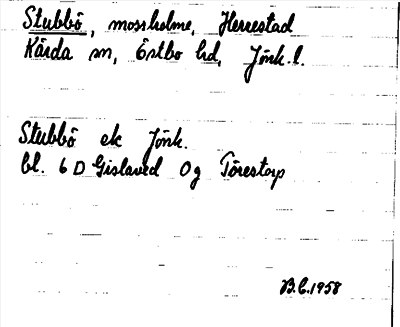 Stubbö, mossholme, Herrestad
Kärda sn, Östbo hd, Jönk. l.
Stubbö ek Jönk.
bl. 6 D Gislaved Og Törestorp
B.E. 1958